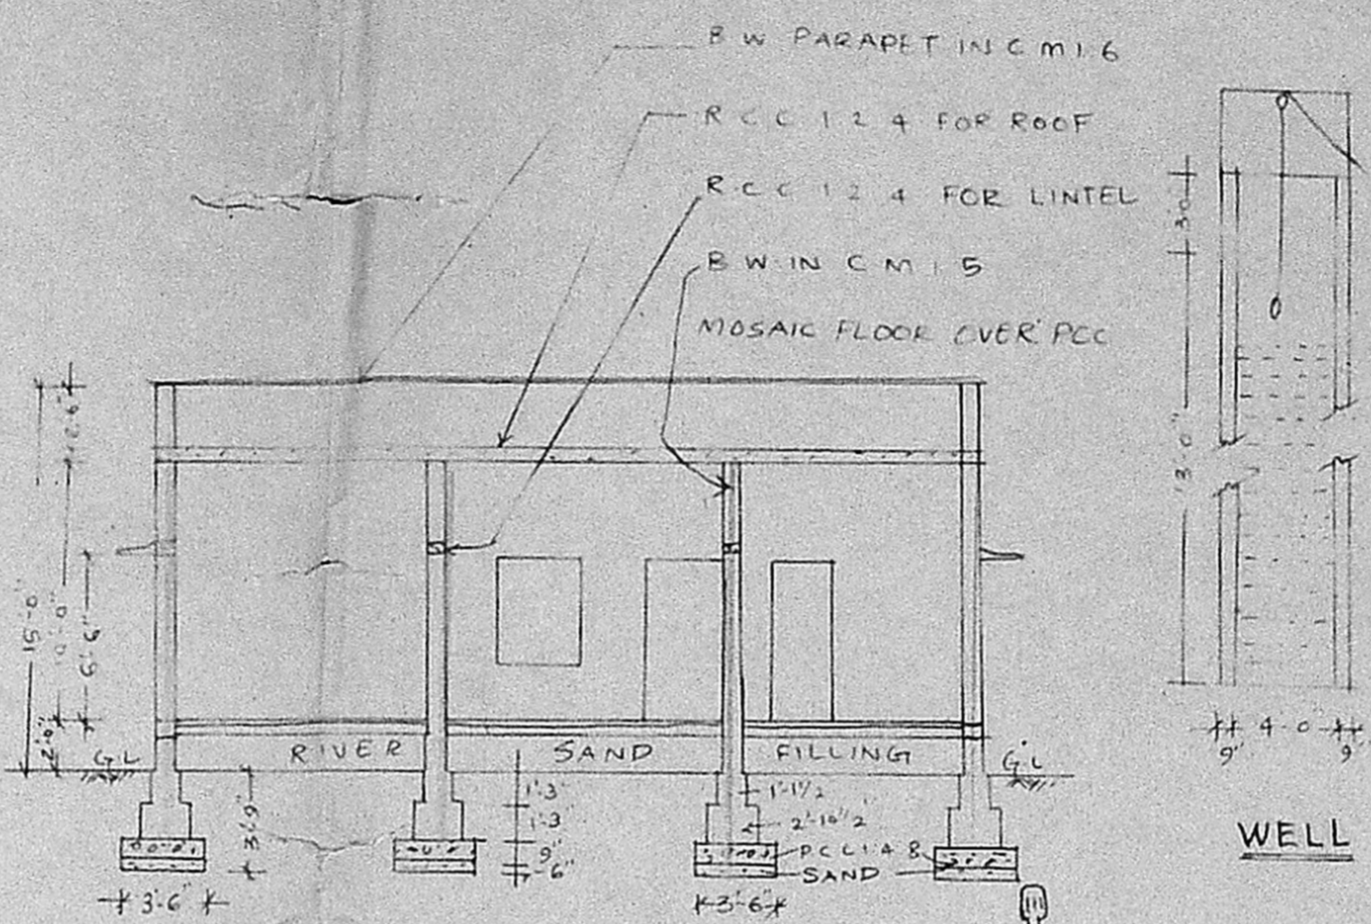 B W PARAPET IN C M 1 6
R C C 1 2 4 FOR ROOF
R C C 1 2 4 FOR LINTEL
B W IN C M 1 5
MOSAIC FLOOR OVER PCC
3 0
13'-0"
4-0
9"
9"
WELL
2'-6"
15'-0"
10'-0"
6'-6"
2'-0"
G L
RIVER SAND FILLING
G L
3'-9"
1'-3"
1-3
9"
6"
1'-1 1/2
2'-10 1/2
P C C 1 4 8
SAND
3'-6"
3'-6"